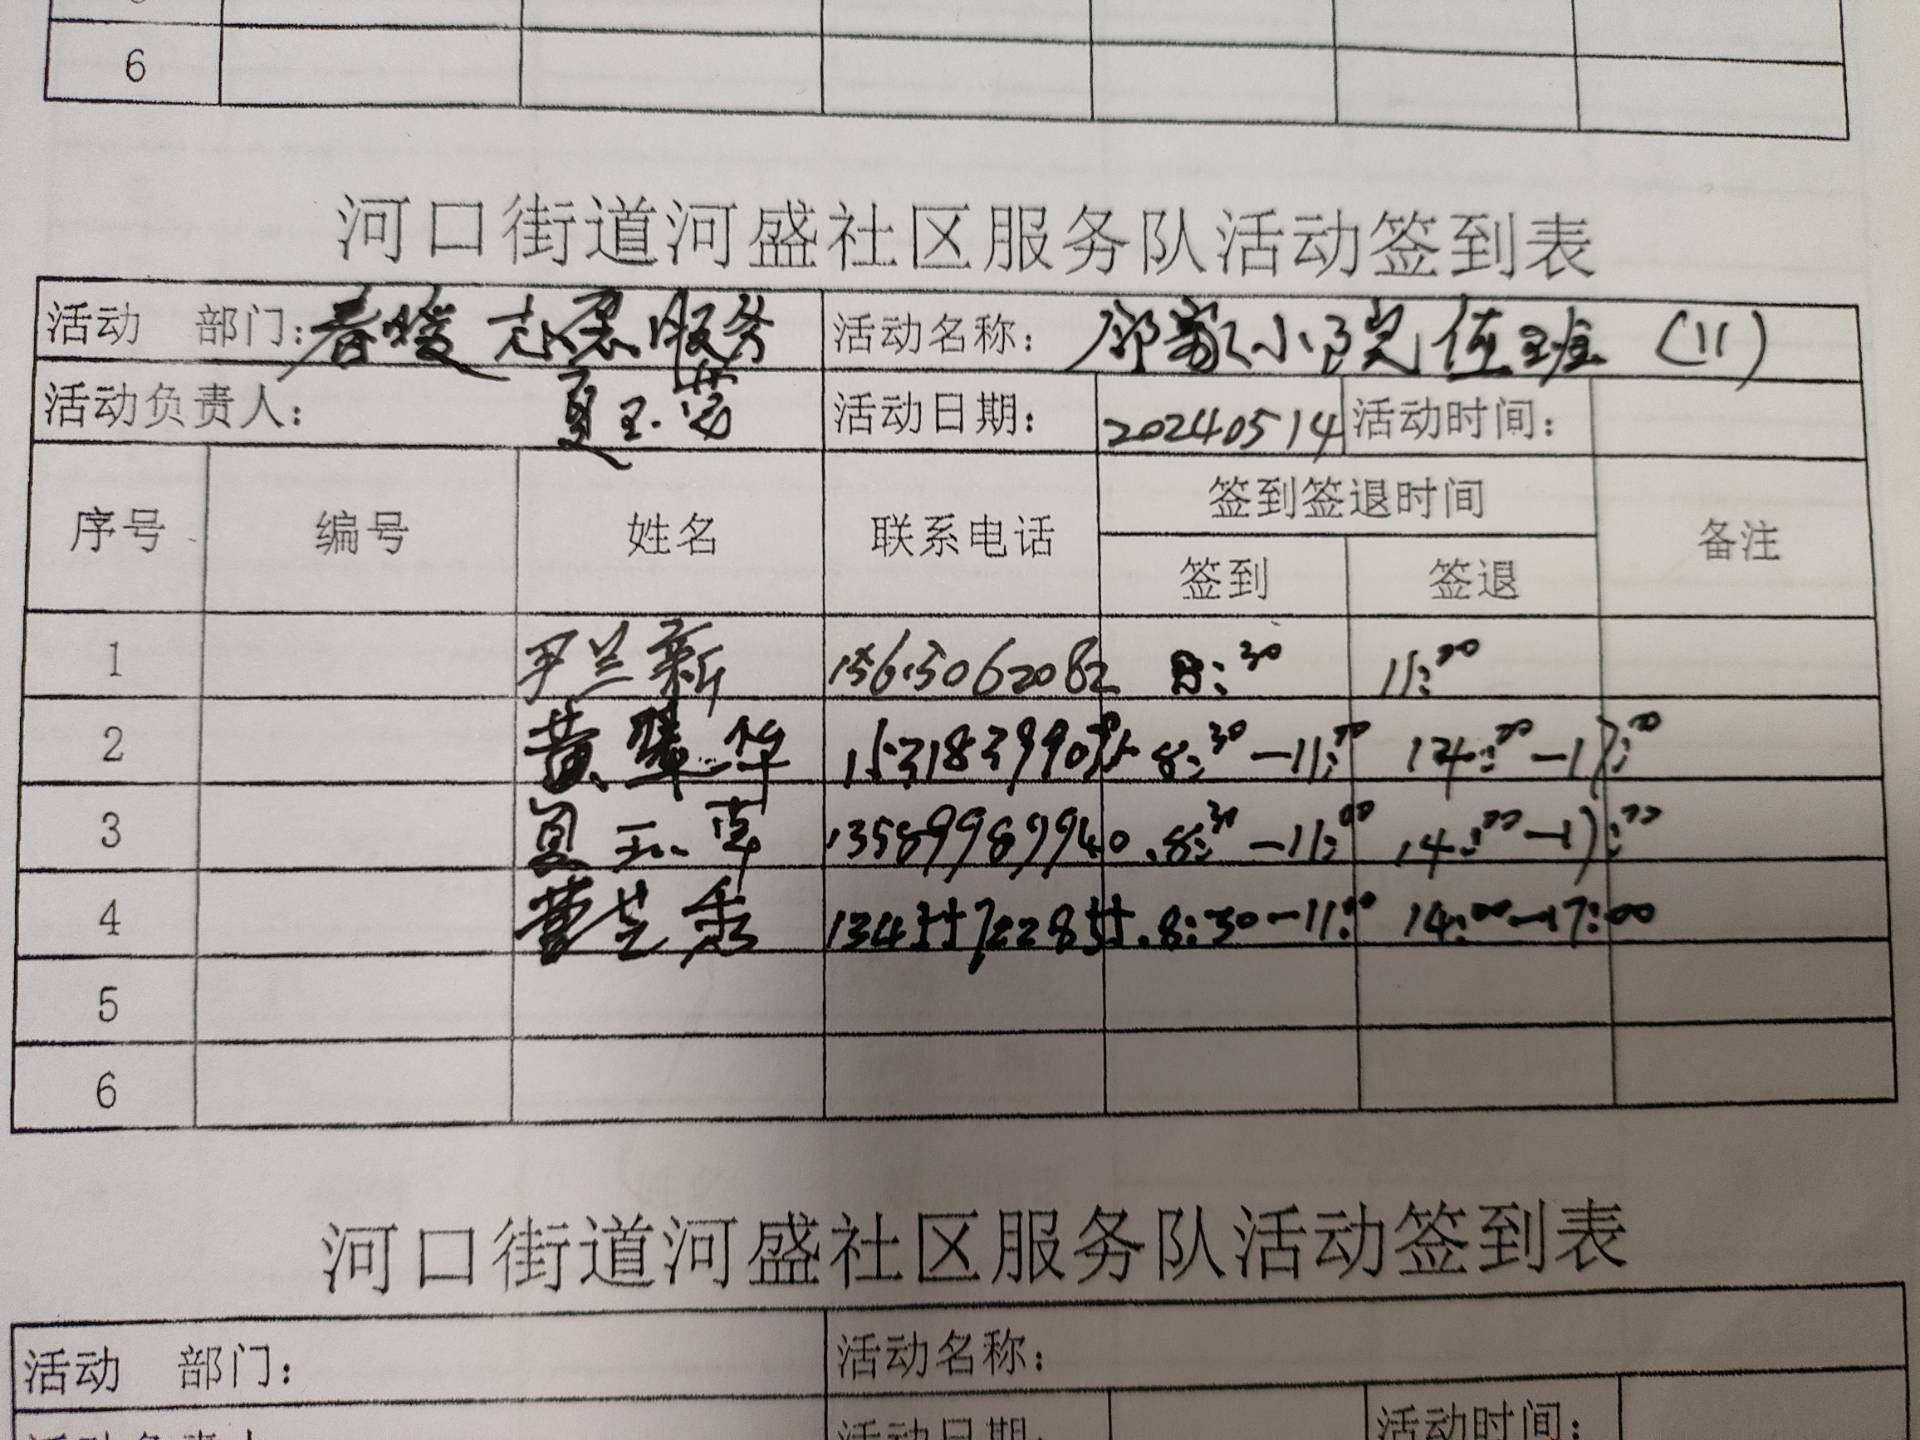 6
河口街道河盛社区服务队活动签到表
活动 部门：春暖志愿服务 活动名称：邻家小院值班（11）
活动负责人： 夏玉 活动日期：20240514 活动时间：
序号 编号 姓名 联系电话 签到签退时间 备注
签到 签退
1 尹兰新 15615062082 8:30 11:00
2 黄 华 8:30-11:00 14:00-17:00
3 夏玉 13589987940 8:30-11:00 14:00-17:00
4 芝秀 13455722855 8:30-11:00 14:00-17:00
5
6
河口街道河盛社区服务队活动签到表
活动 部门： 活动名称：
活动负责人 活动日期： 活动时间：